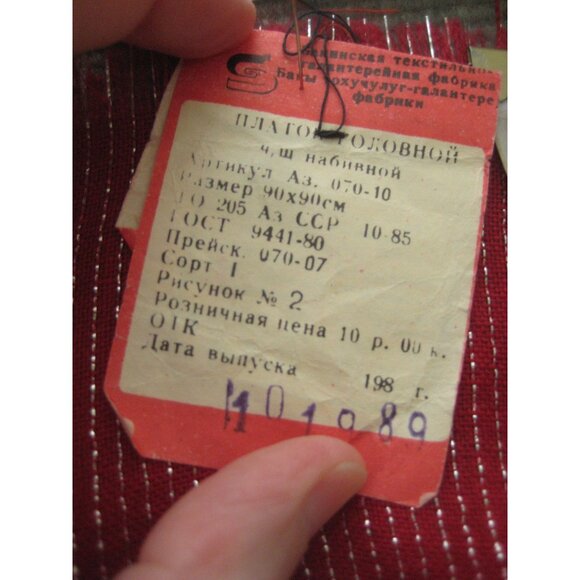 Бакинская текстильно-
галантерейная фабрика
Бакы тохучулуг-галантере
фабрики
ПЛАТОК ГОЛОВНОЙ
ч/ш набивной
Артикул Аз. 070-10
Размер 90х90см
РО 205 Аз ССР 10-85
ГОСТ 9441-80
Прейск. 070-07
Сорт I
Рисунок № 2
Розничная цена 10 р. 00 к.
ОТК
Дата выпуска 198 г.
10 1989